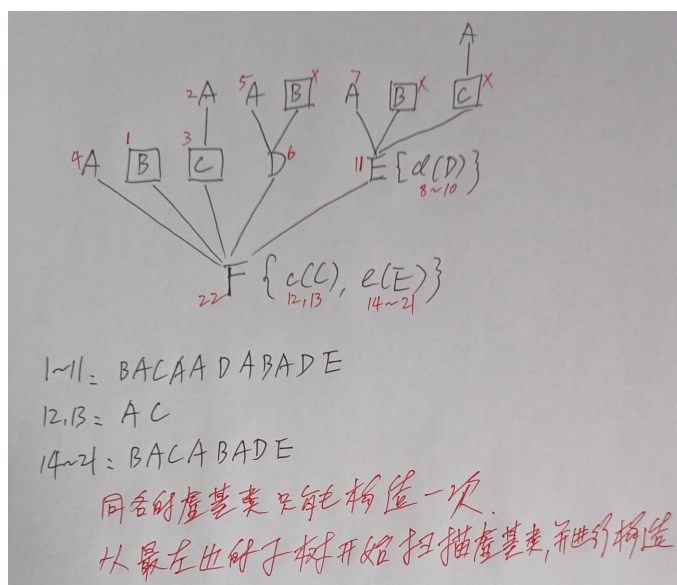 A
2 A 5 A B x 7 A B x C x
4 A 1 B 3 C D 6 11 E { d(D) }
8~10
22 F { c(C), e(E) }
12,13 14~21
1~11: BACAADABADE
12,13: AC
14~21: BACABADE
同名的虚基类只能构造一次.
从最左边的子树开始扫描虚基类,并进行构造